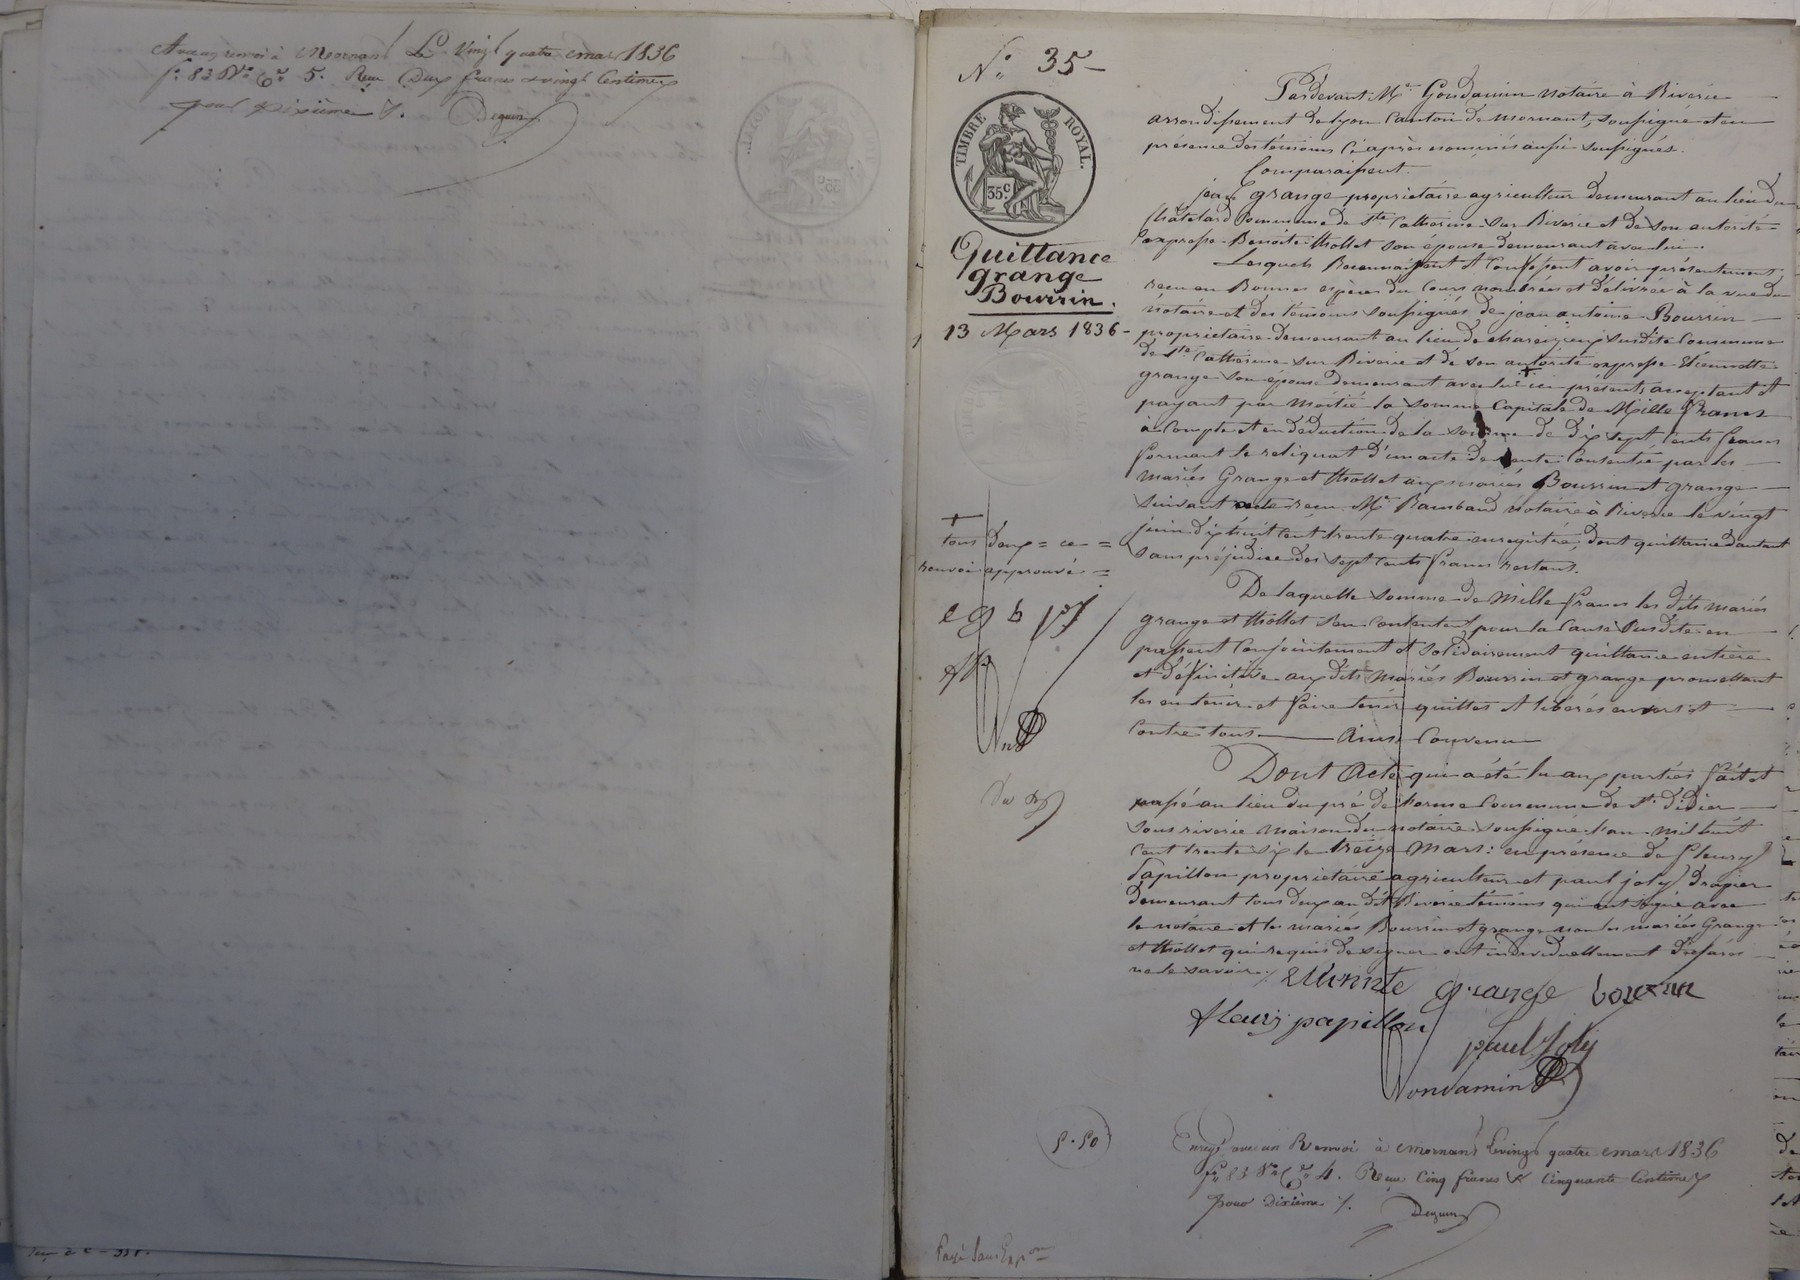 Avec un renvoi à Mornant Le Vingt quatre mars 1836
f° 83 V° C° 5. Reçu Deux francs vingt Centimes
pour dixième /. Dequin
N° 35 -
TIMBRE ROYAL.
35 c
Quittance
grange
Bourrin.
13 Mars 1836 -
Pardevant Me Gondamin notaire à Riverie
arrondissement de Lyon Canton de Mornant, soussigné et en
présence des témoins Ci après nommés aussi soussignés.
Comparaissent.
jean grange propriétaire agriculteur demeurant au lieu du
Châtelard Commune de Ste Catherine sur Riverie et de son autorité
expresse Benoite thollet son épouse demeurant avec lui.
Lesquels Reconnaissent et Confessent avoir présentement
reçu en Bonnes espèces du Cours nombrées et délivrées à la vue du
notaire et des témoins soussignés de jean antoine Bourrin
propriétaire demeurant au lieu de susdite Commune
de Ste Catherine sur Riverie et de son autorité expresse Etiennette
grange son épouse demeurant avec lui + ici présents acceptant et
payant par moitié la somme Capitale de Mille francs
à Compte et en déduction de la somme de dix sept cents francs
formant le reliquat d'un acte de vente Consentie par les
mariés Grange et thollet aux mariés Bourrin et grange
suivant acte reçu Me Rambaud notaire à Riverie le vingt
juin dix huit cent trente quatre enregistré, dont quittance d'autant
sans préjudice des sept cents francs restant.
+
tous deux = ce =
renvoi approuvé =
e g b pj
fp
De laquelle somme de Mille francs les dits mariés
grange et thollet s'en Contentent pour la Cause susdite en
passent Conjointement et solidairement quittance entière
et définitive aux dits mariés Bourrin et grange promettant
les en tenir et faire tenir quittes et libérés envers et
Contre tous. Ainsi Convenu
Dont Acte qui a été lu aux parties fait et
passé au lieu du pré de lorme Commune de St. Didier
sous riverie maison du notaire soussigné l'an mil huit
Cent trente six le treize Mars: en présence de fleury
Papillon propriétaire agriculteur et paul joly drapier
demeurant tous deux au dit Riverie témoins qui ont signé avec
le notaire et les mariés Bourrin et grange non les mariés Grange
et thollet qui requis de signer ont individuellement déclaré
ne le savoir /. etiennte grange bourrin
fleury papillon
paul Joly
Gondamin
5.50
Enregé avec un Renvoi à Mornant le vingt quatre mars 1836
f° 83 V° C° 4. Reçu Cinq francs & Cinquante Centimes
pour dixième /. Dequin